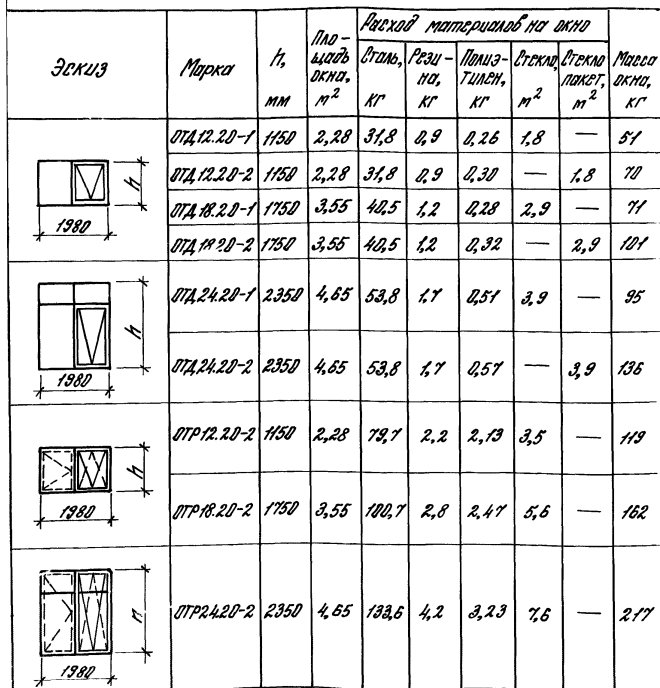 Эскиз | Марка | h, мм | Пло-щадь окна, м² | Расход материалов на окно | Масса окна, кг
Сталь, кг | Рези-на, кг | Полиэ-тилен, кг | Стекло, м² | Стекло пакет, м²
ОТД 12.20-1 | 1150 | 2,28 | 31,8 | 0,9 | 0,26 | 1,8 | — | 51
ОТД 12.20-2 | 1150 | 2,28 | 31,8 | 0,9 | 0,30 | — | 1.8 | 70
ОТД 18.20-1 | 1750 | 3,55 | 40,5 | 1,2 | 0,28 | 2,9 | — | 71
ОТД 18.20-2 | 1750 | 3,55 | 40,5 | 1,2 | 0,32 | — | 2,9 | 101
h
1980
ОТД 24.20-1 | 2350 | 4,65 | 53,8 | 1,7 | 0,51 | 3,9 | — | 95
ОТД 24.20-2 | 2350 | 4,65 | 53,8 | 1,7 | 0,57 | — | 3,9 | 136
h
1980
ОТР 12.20-2 | 1150 | 2,28 | 79,7 | 2,2 | 2,13 | 3,5 | — | 119
ОТР 18.20-2 | 1750 | 3,55 | 100,7 | 2,8 | 2,47 | 5,6 | — | 162
h
1980
ОТР 24.20-2 | 2350 | 4,65 | 133,6 | 4,2 | 3,23 | 7,6 | — | 217
h
1980